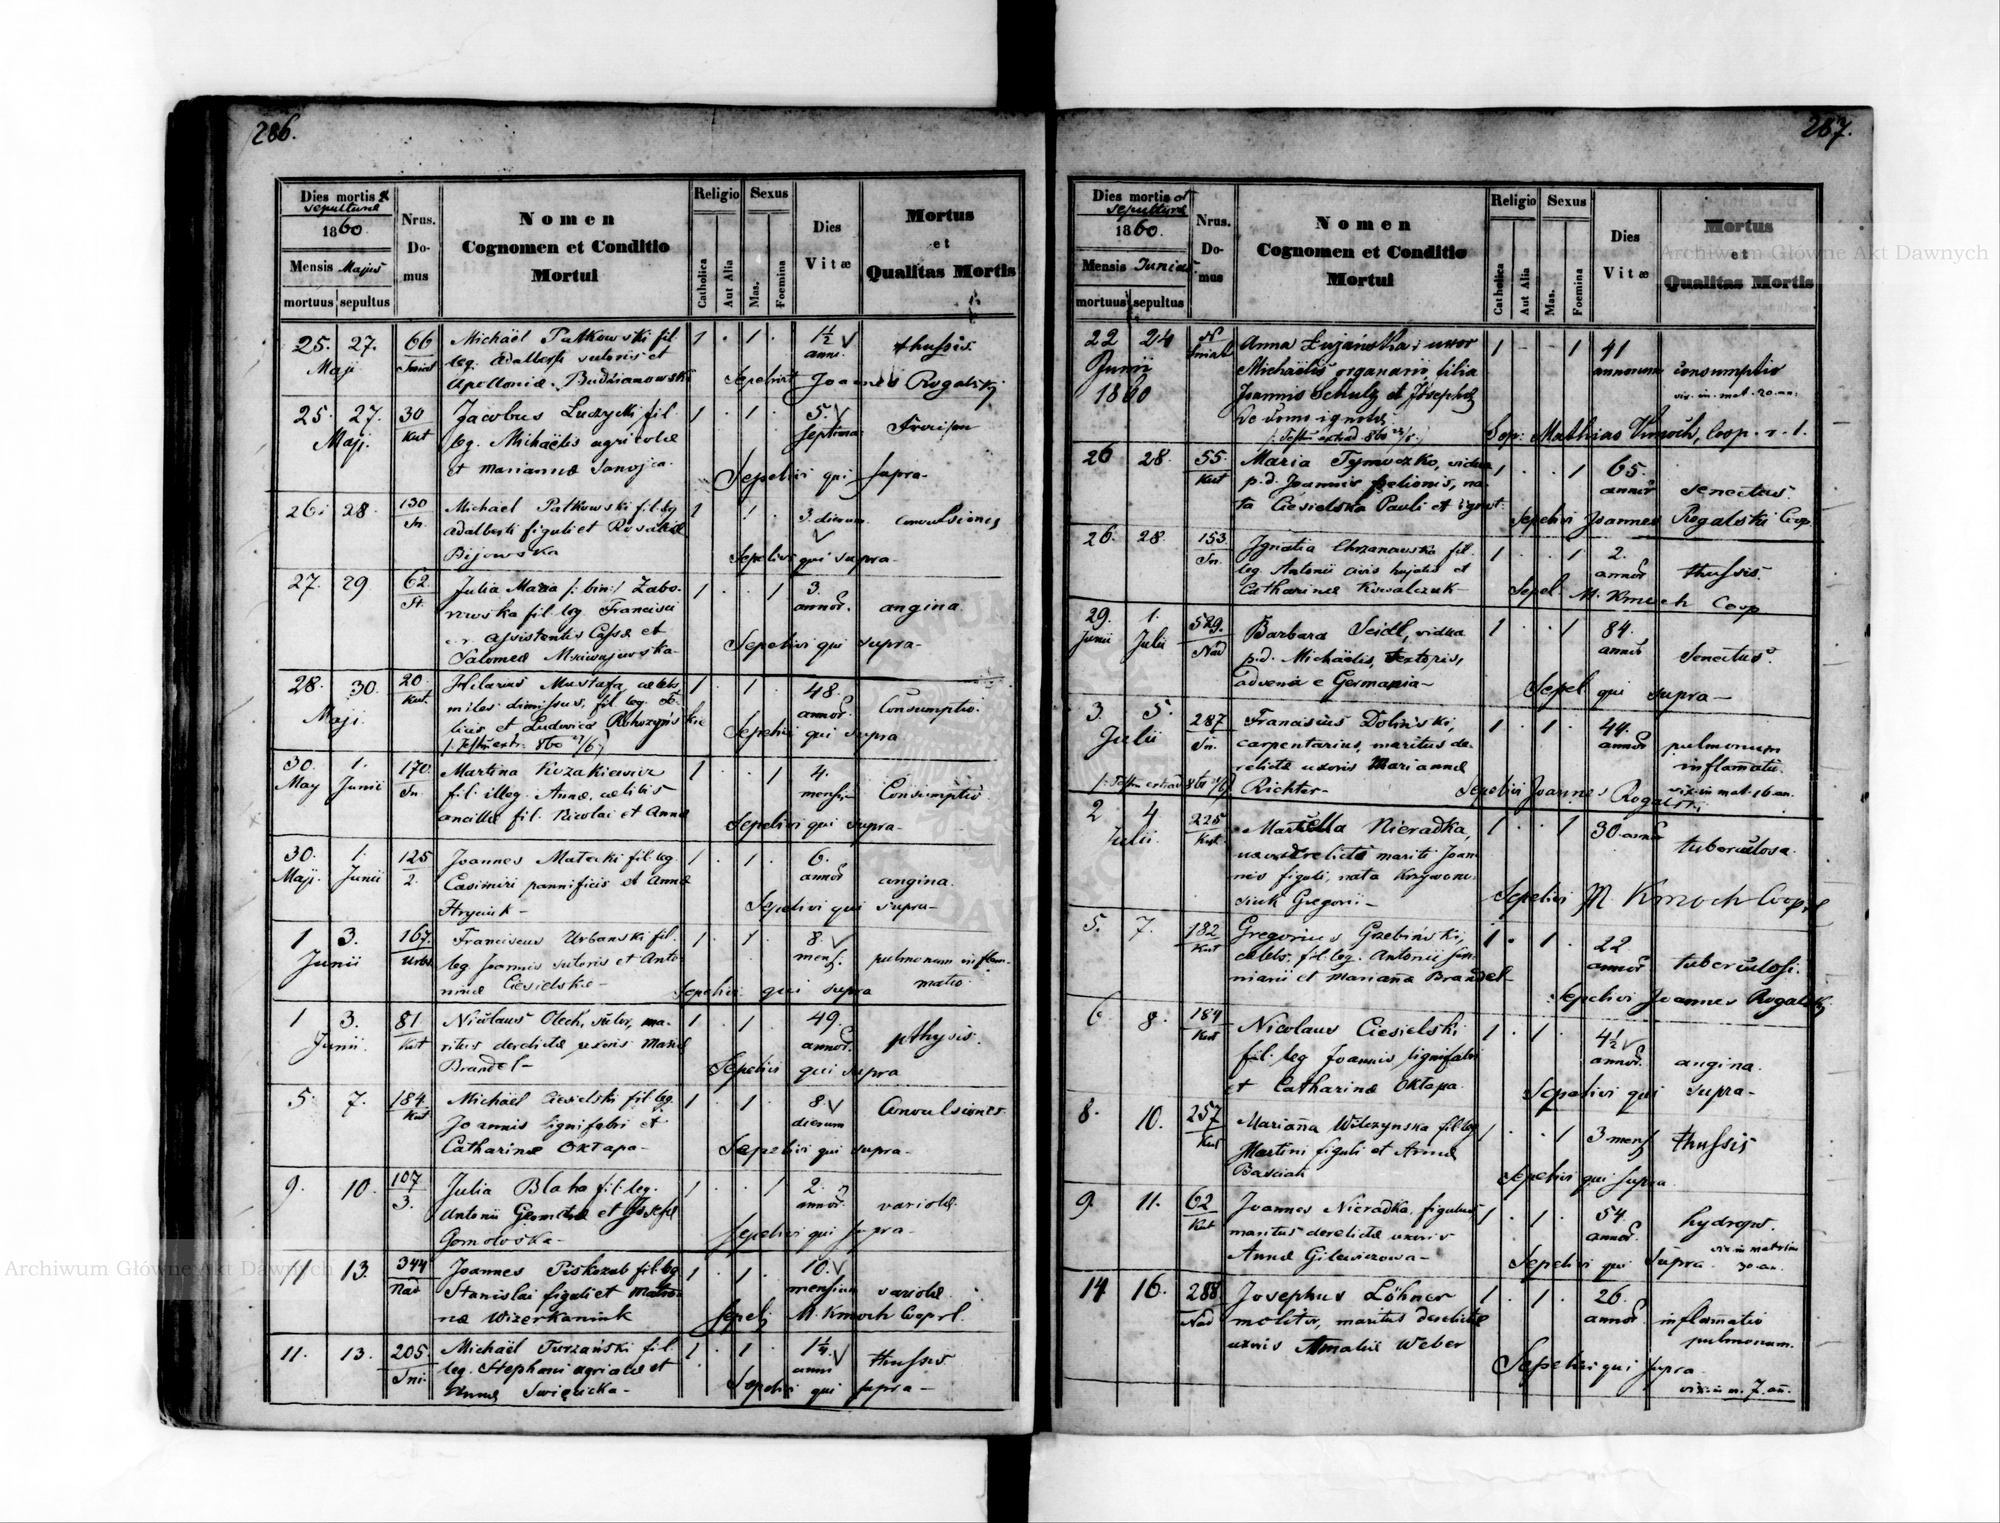 286.
Dies mortis &
sepulturae
1860.
Mensis Majus
mortuus sepultus
Nrus.
Do-
mus
Nomen
Cognomen et Conditio
Mortui
Religio
Catholica
Aut Alia
Sexus
Mas.
Foemina
Dies
Vitæ
Mortus
et
Qualitas Mortis
25. 27. 66 Michaël Patkowski fil. 1 . 1 . 1½ thussis.
Maji leg. Adalberti sutoris et anni.
Apolloniæ Budzianowski Sepelivit Joannes Rogalski
25 27. 30 Jacobus Ludzycki fil. 1 . 1 . 5
Maji. Kut leg. Michaëlis agricolæ septima:
et Mariannæ Sepelivi qui supra-
26. 28. 130 Michaël Patkowski fil. leg. 1 3. dierum convulsiones
Sn. Adalberti figuli et Rosaliæ
Bijowska Sepelivi qui supra-
27. 29. 62 Julia Maria /: bin:/ Zabo- 1 . . 1 3.
St. rowska fil. leg. Francisci annor. angina.
assistentis Cassæ et
Salomeæ Sepelivi qui supra-
28. 30. 20 Hilarius Mustafa cælebs 1 . 1 . 48.
Maji Kut. miles dimissus, fil. leg. annor. Consumptio.
et Ludovicæ Sepelivi qui supra
30. 1. 170 Martina Kozakiewicz 1 . . 1 4.
May Junii Sn. fil. illeg. Annæ, cælibis mensi- Consumptio.
ancillæ fil. Nicolai et Annæ
Sepelivi qui supra-
30. 1. 125 Joannes Matecki fil. leg. 1 . 1 . 6.
Maji. Junii 2. Casimiri pannificis et Annæ annor angina.
Hryciuk- Sepelivi qui supra-
1 3. 167. Franciscus Urbanski fil. 1 . 1 . 8.
Junii leg. Joannis sutoris et Anto- mens. pulmonum inflam-
ninæ Ciesielskæ- Sepelivi qui supra matio.
1 3. 81 Nicolaus Olech, sutor, ma- 1 . 1 . 49.
Junii. Kut ritus derelictæ uxoris Mariæ annor. pthysis.
Brandel- Sepelivi qui supra
5. 7. 184 Michaël Ciesielski fil. leg. 1 . 1 . 8. Convulsiones
Kut Joannis lignifabri et dierum
Catharinæ Oktapa- Sepelivi qui supra-
9. 10. 107 Julia Blaha fil. leg. 1 . . 1 2.
3. Antonii Geometræ et Josefæ annor. variolæ.
Sepelivi qui supra-
11 13. 344 Joannes Piskozub fil. leg. 1 . 1 . 10.
Nad Stanislai figuli et mensium variolæ.
næ Wizerkaniuk Sepeli M. Kmoch Cooprl.
11. 13. 205 Michaël Turzański fil. 1 . 1 . 1¼
Sni. leg. Stephani agricolæ et anni thussis
Annæ Swięcicka- Sepelivi qui supra-
287.
Dies mortis et
sepulturæ
1860.
Mensis Junius
mortuus sepultus
Nrus.
Do-
mus
Nomen
Cognomen et Conditio
Mortui
Religio
Catholica
Aut Alia
Sexus
Mas.
Foemina
Dies
Vitæ
Mortus
et
Qualitas Mortis
22 24 Anna uxor 1 - 1 41
Junii Michaëlis organarii, filia annorum consumptio
1860 Joannis Schulz et Josephæ vix. in. mat. 20. an:
de domo ignotæ
Sep: Mathias Kmoch, Coop. r. l.
26 28. 55 Maria Tymoczko, vidua 1 . . 1 65.
Kut p.d. Joannis pelionis, na- annor senectus.
ta Ciesielska Pauli et ignot. Sepelivi Joannes Rogalski Coop.
26. 28. 153 Ignatia Chrzanowska fil. 1 . . 1 2.
Sn. leg. Antonii civis hujatis et annor thussis.
Catharinæ Kowalczuk- Sepel M. Kmoch Coop
29. 1. 529. Barbara Seidl, vidua 1 . . 1 84.
Junii Julii Nad p.d. Michaëlis, textoris, annor Senectus.
advenæ e Germania- Sepel qui supra-
3 5. 287 Franciscus Doliński, 1 . 1 . 44.
Julii Sn. carpentarius, maritus de- annor pulmonum
relictæ uxoris Mariannæ inflamatio.
Richter- Sepelivi Joannes Rogalski vix. in mat. 16 an.
2 4 225 Marcella Nieradka, 1 . . 1 30. annor
Julii. Kut. uxor derelicti mariti Joan- tuberculosa.
nis figuli, nata Krzywonu-
siuk Gregorii- Sepelivi M. Kmoch Cooprl
5. 7. 182 Gregorius Grebiński, 1 . 1 . 22
Kut cælebs, fil. leg. Antonii annor tuberculosi.
et Mariana Brandel- Sepelivi Joannes Rogalski
6 8. 184 Nicolaus Ciesielski 1 . 1 . 4½
Kut fil. leg Joannis lignifabri annor. angina.
et Catharinæ Oktapa. Sepelivi qui supra-
8. 10. 257 Marianna Wilczynska fil. leg. 1 . . 1 3 mens thussis
Kut Martini figuli et Annæ
Sepelivi qui supra
9. 11. 62 Joannes Nieradka, figulus 1 . 1 . 54.
Kut maritus derelictæ uxoris annor. hydrops.
Annæ Gilewiczowa- Sepelivi qui supra. vix. in matrim 30. an.
14 16. 288 Josephus Löhner 1 . 1 . 26.
Nad molitor, maritus derelictæ annor. inflamatio
uxoris Amalii Weber pulmonum.
Sepelivi qui supra
vix. in m. 7. an.
Archiwum Główne Akt Dawnych
Archiwum Główne Akt Dawnych